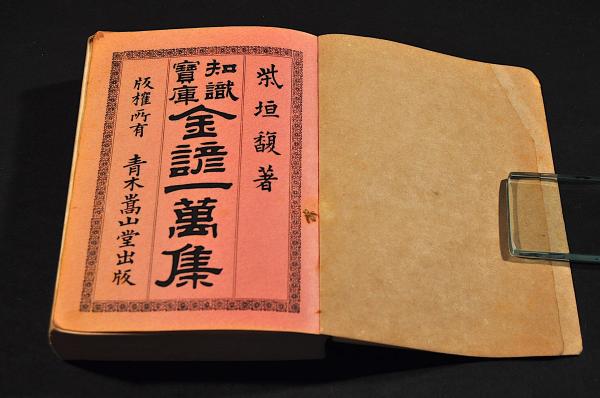 柴垣馥著
知識寶庫
金諺一萬集
版權所有 青木嵩山堂出版